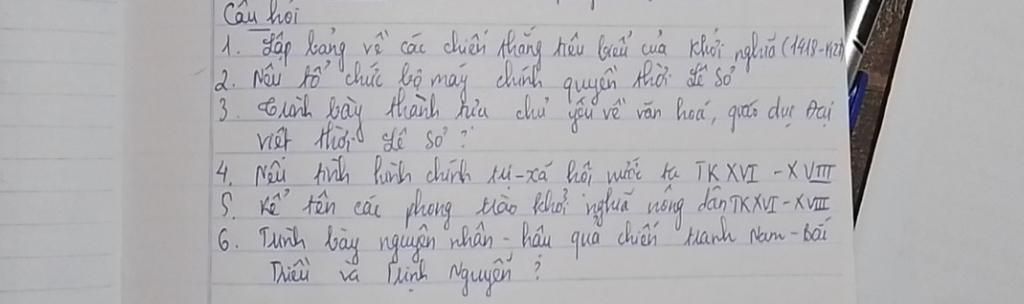 Câu hỏi
1. Lập bảng về các chiến thắng tiêu biểu của khởi nghĩa (1418-1427)
2. Nêu tổ chức bộ máy chính quyền thời Lê Sơ
3. Trình bày thành tựu chủ yếu về văn hoá, giáo dục Đại
Việt thời Lê Sơ ?
4. Nêu tình hình chính trị - xã hội nước ta TK XVI - XVIII
5. Kể tên các phong trào khởi nghĩa nông dân TK XVI - XVIII
6. Trình bày nguyên nhân - hậu quả chiến tranh Nam - Bắc
Triều và Trịnh Nguyễn ?